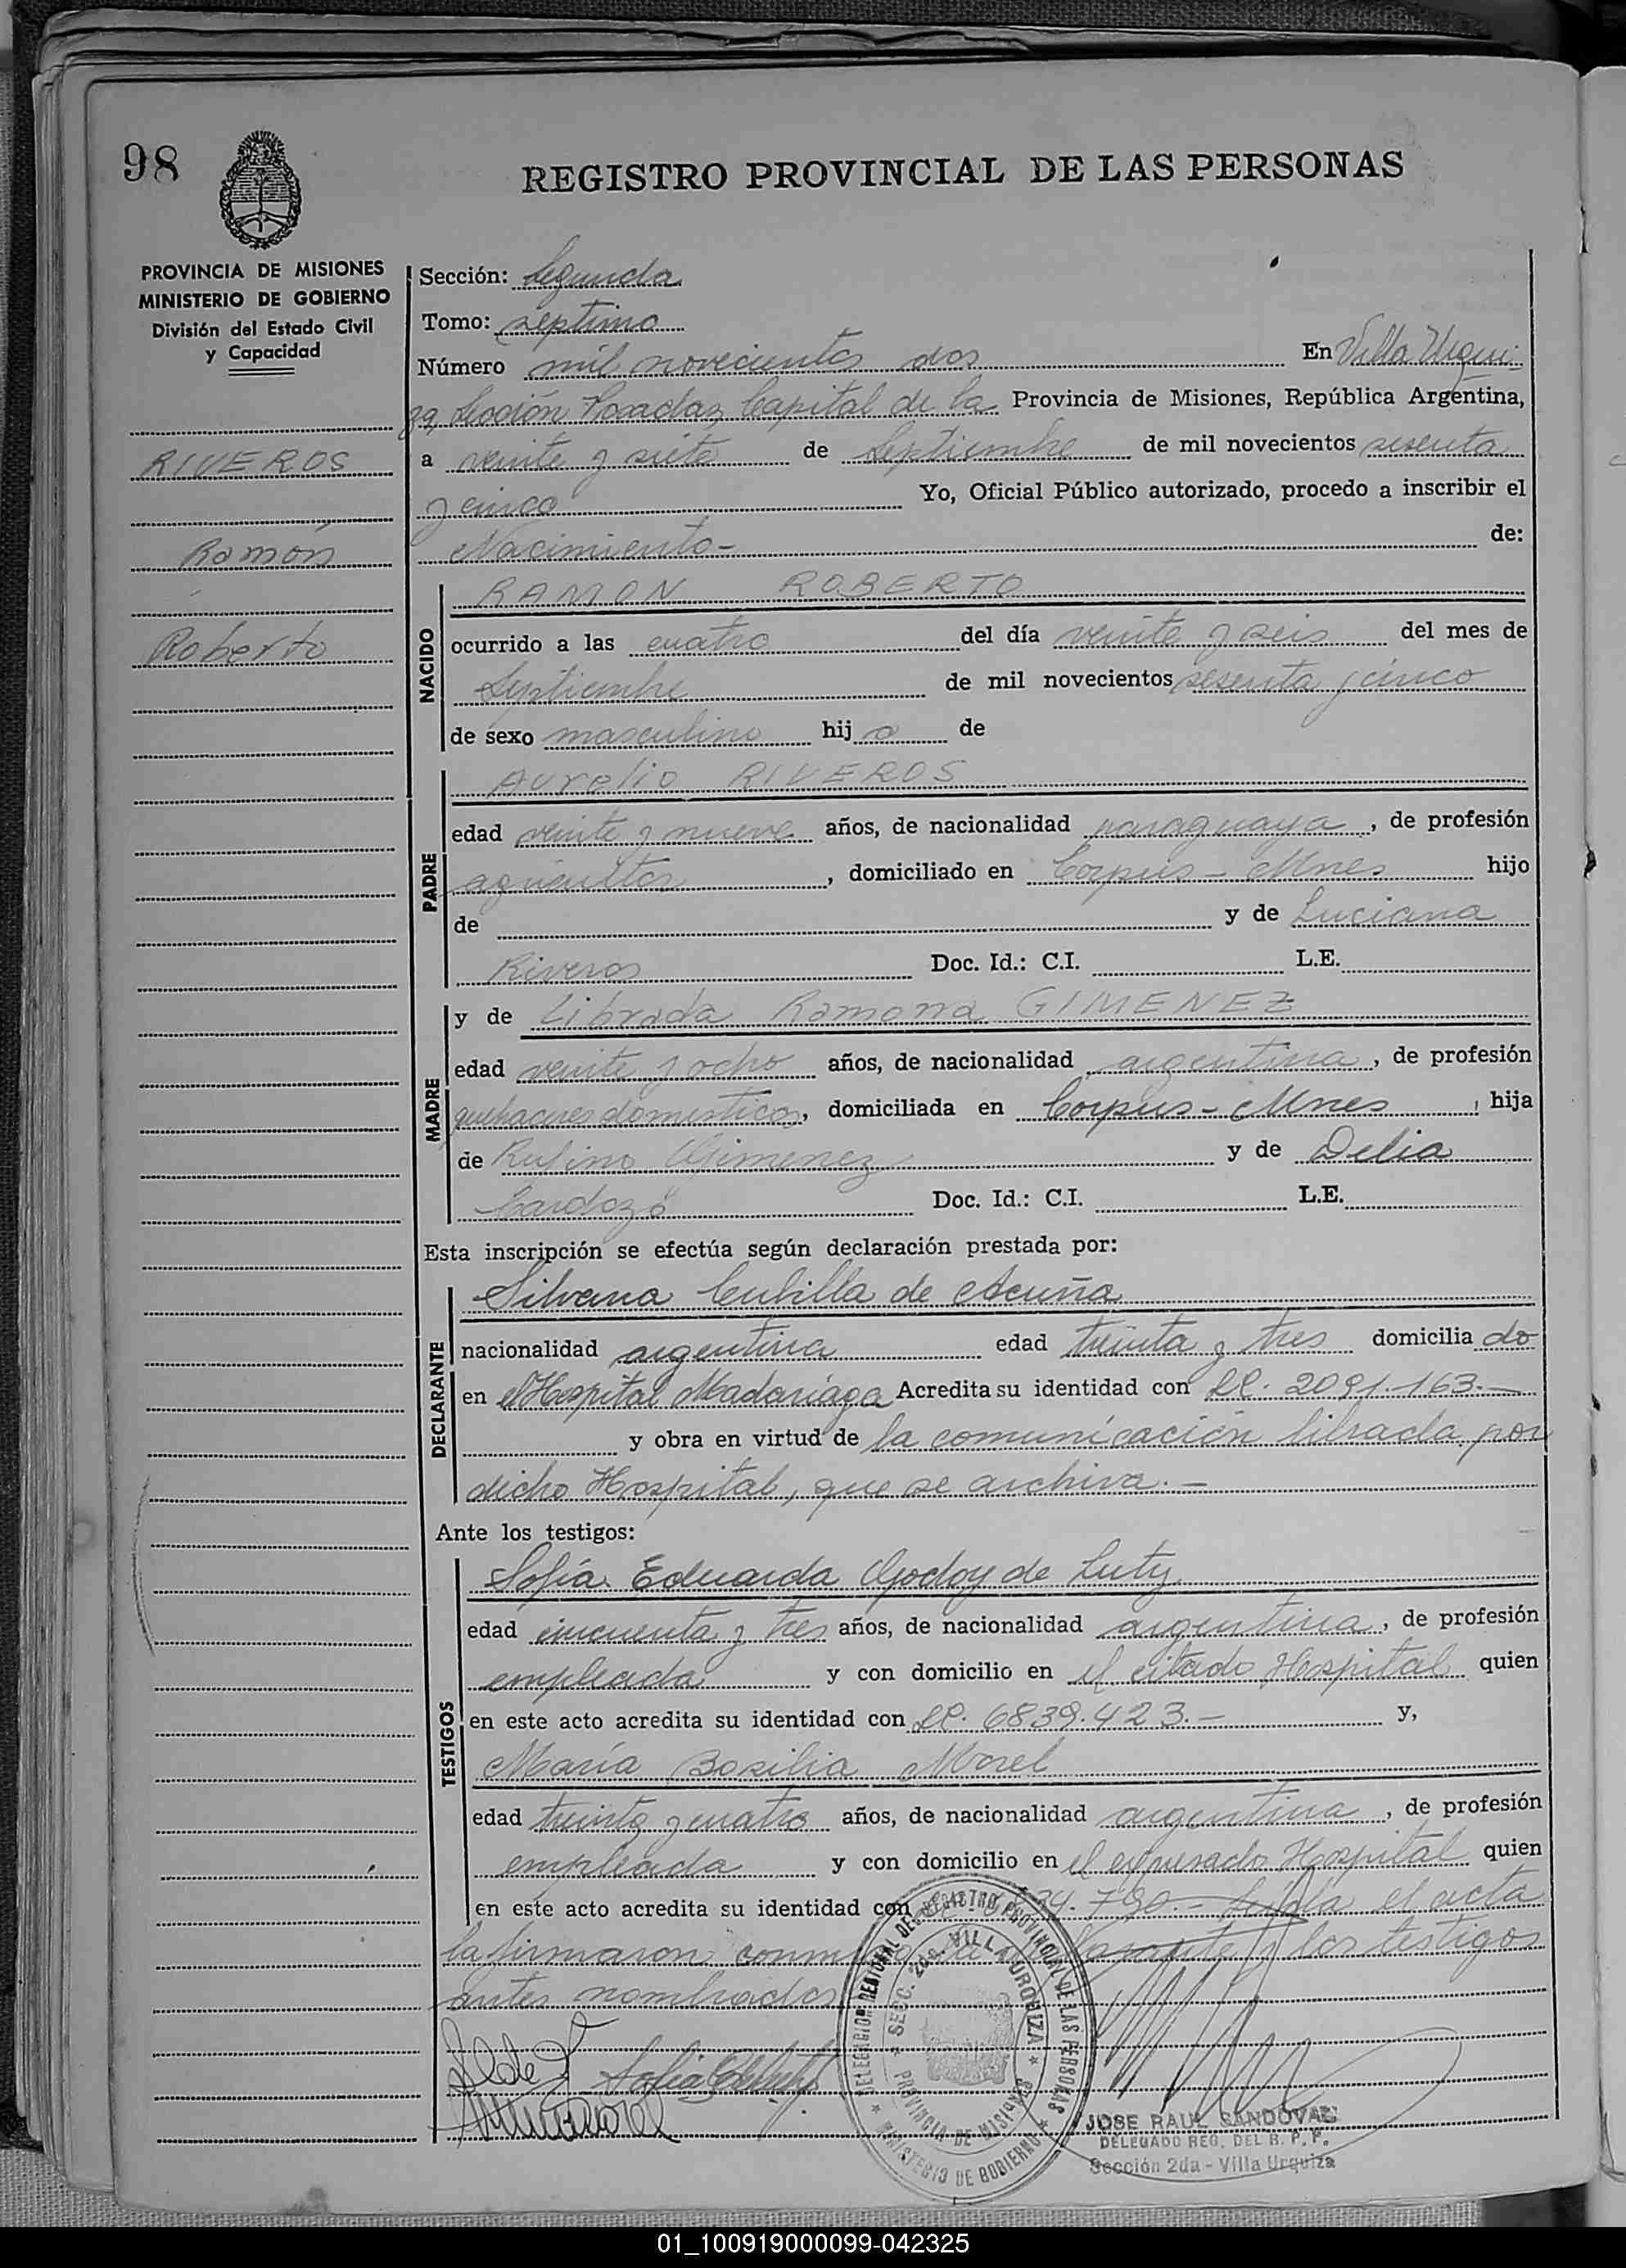 98
REGISTRO PROVINCIAL DE LAS PERSONAS
PROVINCIA DE MISIONES
MINISTERIO DE GOBIERNO
División del Estado Civil
y Capacidad
RIVEROS
Ramón
Roberto
Sección: Segunda
Tomo: séptimo
Número mil novecientos dos En Villa Urqui
za, Sección Posadas, Capital de la Provincia de Misiones, República Argentina,
a veinte y siete de Septiembre de mil novecientos sesenta
y cinco Yo, Oficial Público autorizado, procedo a inscribir el
Nacimiento- de:
NACIDO
RAMON ROBERTO
ocurrido a las cuatro del día veinte y seis del mes de
Septiembre de mil novecientos sesenta y cinco
de sexo masculino hijo de
PADRE
Aurelio RIVEROS
edad veinte y nueve años, de nacionalidad paraguaya, de profesión
agricultor, domiciliado en Corpus - Mnes hijo
de y de Luciana
Riveros Doc. Id.: C.I. L.E.
MADRE
y de Librada Ramona GIMENEZ
edad veinte y ocho años, de nacionalidad argentina, de profesión
quehaceres domesticos, domiciliada en Corpus - Mnes, hija
de Rufino Gimenez y de Delia
Cardozo Doc. Id.: C.I. L.E.
Esta inscripción se efectúa según declaración prestada por:
DECLARANTE
Silvana Cubilla de Acuña
nacionalidad argentina edad treinta y tres domicilia do
en el Hospital Madariaga Acredita su identidad con LC. 2091.163.-
y obra en virtud de la comunicación librada por
dicho Hospital, que se archiva.-
Ante los testigos:
TESTIGOS
Sofía Eduarda Godoy de Luty
edad cincuenta y tres años, de nacionalidad argentina, de profesión
empleada y con domicilio en el citado Hospital quien
en este acto acredita su identidad con LC. 6839.423.- y,
María Basilia Morel
edad treinta y cuatro años, de nacionalidad argentina, de profesión
empleada y con domicilio en el expresado Hospital quien
en este acto acredita su identidad con 790.- Leída el acta
la firmaron conmigo la declarante y los testigos
antes nombrados
DELEGACION REGIONAL DEL REGISTRO PROVINCIAL DE LAS PERSONAS
SECC. 2da. VILLA URQUIZA
PROVINCIA DE MISIONES
MINISTERIO DE GOBIERNO
JOSE RAUL SANDOVAL
DELEGADO REG. DEL R. P. P.
Sección 2da - Villa Urquiza
01_100919000099-042325